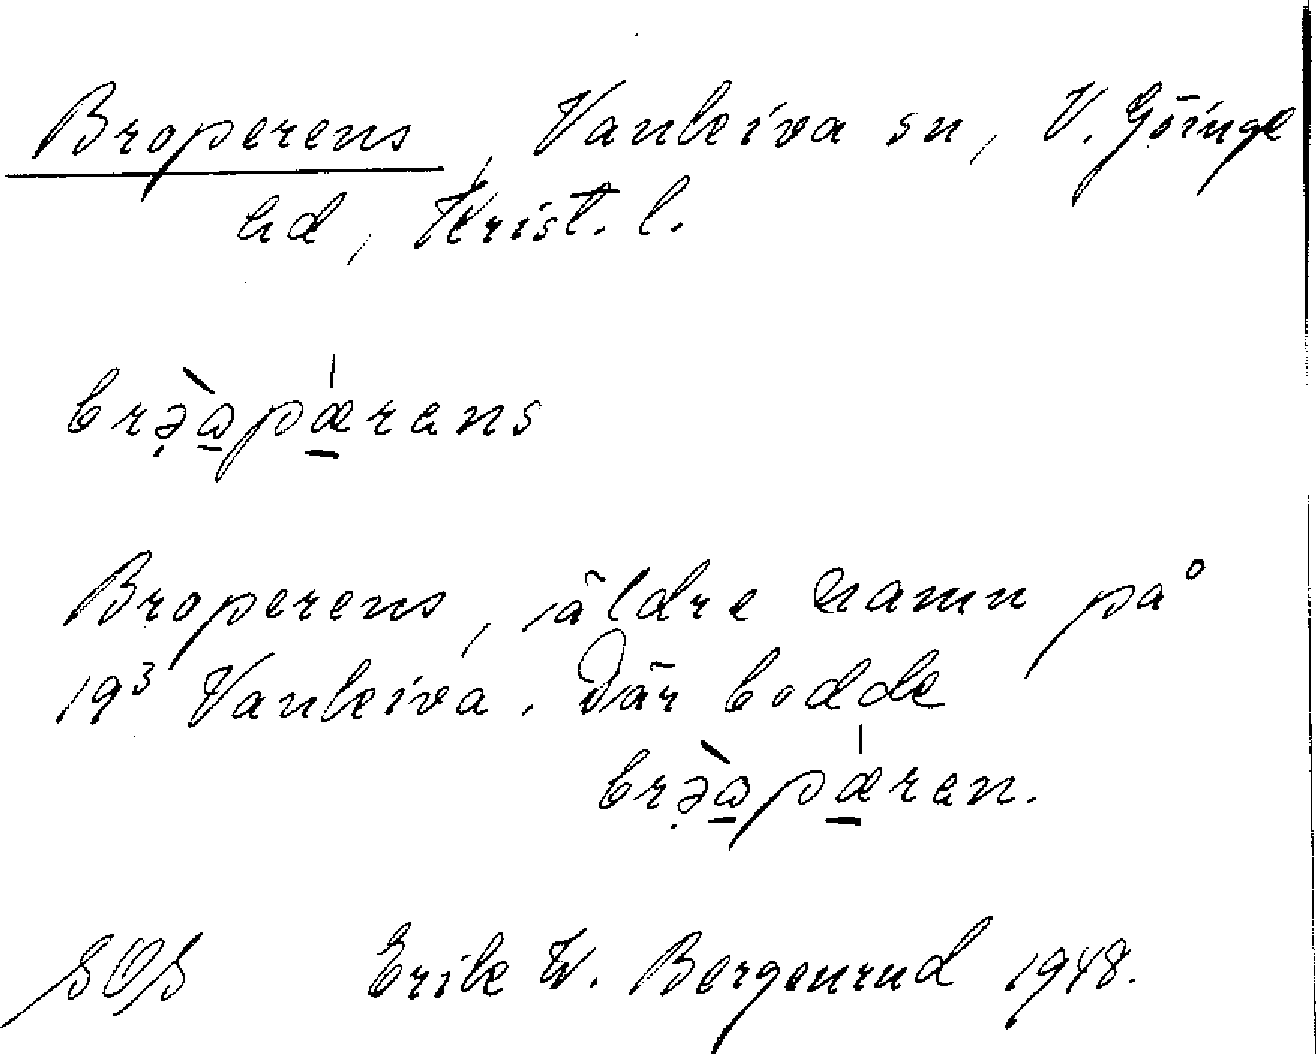 Broperens, Vankiva sn, V. Göinge
hd, Krist. l.
brə̣̀a̱pǽ̱rans
Broperens, äldre namn på
19³ Vankiva. Där bodde
brə̣̀a̱pǽ̱ran.
SOS Erik W. Bergenrud 1948.